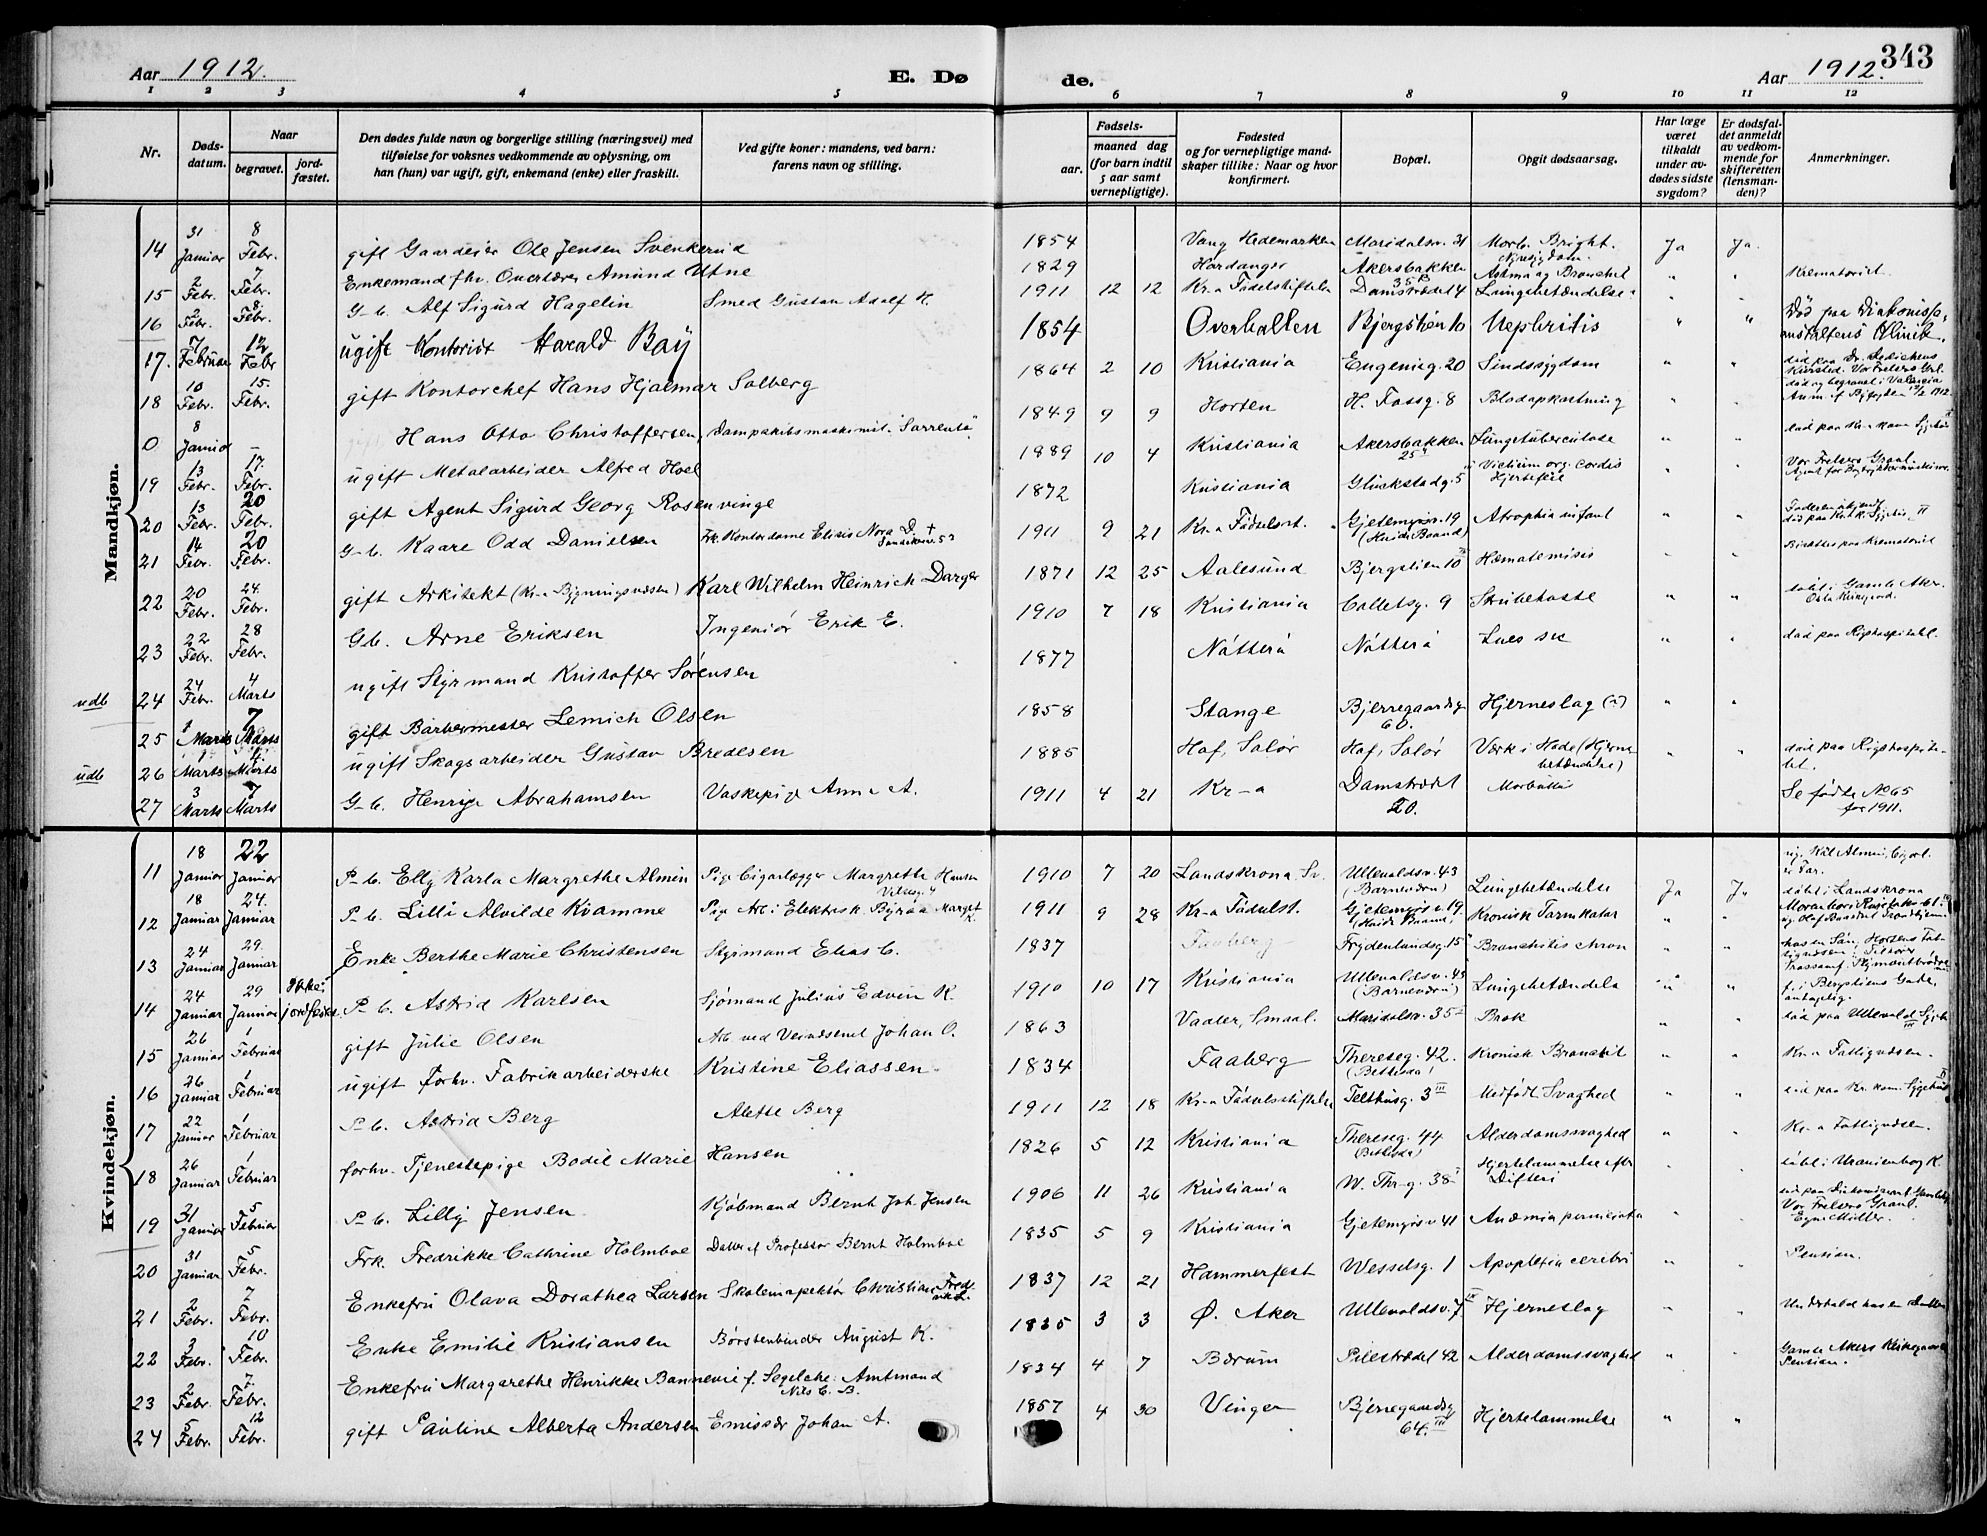 Aar 1912. E. Dø de. Aar 1912. 343
1 2 3 4 5 6 7 8 9 10 11 12
Nr. Døds-datum. Naar begravet. jord-fæstet. Den dødes fulde navn og borgerlige stilling (næringsvei) med tilføielse for voksnes vedkommende av oplysning, om han (hun) var ugift, gift, enkemand (enke) eller fraskilt. Ved gifte koner: mandens, ved barn: farens navn og stilling. Fødsels- aar. maaned dag (for barn indtil 5 aar samt vernepligtige). Fødested og for vernepligtige mand-skaper tillike: Naar og hvor konfirmert. Bopæl. Opgit dødsaarsag. Har læge været tilkaldt under av-dødes sidste sygdom? Er dødsfal-det anmeldt av vedkom-mende for skifteretten (lensman-den)? Anmerkninger.
Mandkjøn.
14 31 Januar 8 Febr. gift Gaardeier Ole Jensen Svenkerud 1854 Vang Hedemarken Maridalsv. 31 Morb. Bright. Nyresygdom. Ja Ja.
15 2 Febr. 7 Febr. Enkemand fhv. Overlærer Amund Utne 1829 Hardanger Akersbakken Astma og Bronchit " " Krematoriet.
16 2 Febr. 8 Febr. G-b. Alf Sigurd Hagelin Smed Gustav Adolf H. 1911 12 12 Kr-a Fødselsstiftelse Damstrædet 4 Lungebetændelse " "
17. 7 Februar 12 Febr ugift Kontorist Harald Bay 1854 Overhallen Bjergstien 10 Nephritis " " Død paa Diakonisse-anstaltens Klinik.
18 10 Febr. 15. Febr. gift Kontorchef Hans Hjalmar Solberg 1864 2 10 Kristiania Eugenieg. 20 Sindssygdom " "
0 8 Januar – Hans Otto Christoffersen, Dampskibsmaskinist "Sorrento" 1849 9 9 Horten H. Fossg. 8 Blodopkastning " " død og begravet i Valencia
19 13 Febr. 17. Febr. ugift Metalarbeider Alfred Hoel 1889 10 4 Kristiania Akersbakken 25 Lungetuberculose " "
20 13 Febr. 20 Febr. gift Agent Sigurd Georg Rosenvinge 1872 Kristiania Glückstadg. 5 Vitium org. cordis Hjertefeil " " Vor Frelsers Gravl.
21 14 Febr. 20 Febr. G-b. Kaare Odd Danielsen Frk. Kontordame Elisis Nora D. 1911 9 21 Kr-a Fødselsst. Gjetemyrsv. 19 Atrophia infant " "
22 20 Febr. 24. Febr. gift Arkitekt (Kr-a Bygningsvæsen) Karl Wilhelm Heinrich Darger 1871 12 25 Aalesund Bjergstien 10 Hæmatemisis " " Bisættes paa Krematoriet
23 22 Febr. 28 Febr. G-b. Arne Eriksen Ingeniør Erik E. 1910 7 18 Kristiania Colletsg. 9 Strubehoste " " døbt i Gamle Aker. Oslo Kirkegaard.
udb 24 24 Febr. 4 Marts ugift Styrmand Kristoffer Sørensen 1877 Nøtterø Nøtterø Lues " " død paa Rigshospitalet.
25 1 Marts 7 Marts gift Barbermester Lemich Olsen 1858 Stange Bjerregaardsg 60. Hjerneslag " "
udb 26 Marts Marts ugift Skogsarbeider Gustav Bredesen 1885 Hof, Solør Hof, Solør Værk i Hode (Hjernebetændelse) " " død paa Rigshospitalet.
27 3 Marts 7 Marts G-b. Henrign Abrahamsen Vaskepige Anna A. 1911 4 21 Kr-a Damstrædet 20. " " Se fødte No 65 for 1911.
Kvindekjøn.
11 18 Januar 22 Januar P-b. Elly Karla Margrethe Almin Pige Cigarlægger Margrethe Hansen 1910 7 20 Landskrona Sv. Ullevoldsv. 43 (Barnehjem) Lungebetændelse Ja Ja døbt i Landskrona
12 18 Januar 24. Januar P-b. Lilli Alvilde Kvamme Pige Arb. i Elektrisk Byraa Margit K. 1911 9 28 Kr-a Fødselst. Gjetemyrsv. 19. Kronisk Tarmkatar " "
13 24 Januar 29. Januar Enke Berthe Marie Christensen Styrmand Elias C. 1837 Faaberg Frydenlundsg. 15 Bronchitis chron " "
14 24 Januar 29 Januar Ikke jordfæstet. P-b. Astrid Karlsen Sjømand Julius Edvin K. 1910 10 17 Kristiania Ullevoldsv. 43 (Barnehjem) Lungebetændelse " "
15 26 Januar 1 Februar gift Julie Olsen Arb. ved Veivæsenet Johan O. 1863 Vaaler, Smaal. Maridalsv. 35 Brok " " død paa Ullevold Sygeh.
16 26 Januar 1 Februar ugift forhv. Fabrikarbeiderske Kristine Eliassen 1834 Faaberg Thereseg. 42. (Bethesda) Kronisk Bronchit " " Kr.a Fattigvæsen.
17 22 Januar 1 Februar P-b. Astrid Berg Alette Berg 1911 12 18 Kr-a Fødselsstiftelse Telthusg. 3 III Medfødt Svaghed " " død paa Kr. kom. Sygehus
18 26 Januar 1 Februar forhv. Tjenestepige Bodil Marie Hansen 1826 5 12 Kristiania Thereseg. 44 (Bethesda) Alderdomssvaghed " " Kr-a Fattigvæsen.
19 31 Januar 5 Februar P-b. Lilly Jensen Kjøbmand Bernt Joh. Jensen 1906 11 26 Kristiania W. Thr-g. 38 Hjertelammelse efter Difteri " " døbt i Uranienborg K.
20 31 Januar 5 Febr. Frk. Fredrikke Cathrine Holmboe Datter af Professor Bernt Holmboe 1835 5 9 Kristiania Gjetemyrsv 41 Anæmia perniciosa " " Vor Frelsers Gravl.
21 2 Febr. 7 Febr. Enkefru Olava Dorothea Larsen Skoleinspektør Christian Fredrik L. 1837 12 21 Hammerfest Wesselsg. 1 Apoplexia cerebri " " Pension.
22 3 Febr. 10 Febr. Enke Emilie Kristiansen Børstenbinder August K. 1835 3 3 Ø. Aker Ullevoldsv. 7 Hjerneslag " "
23 2 Febr. 7. Febr. Enkefru Margarethe Henrikke Bonnevie f. Segelche. Amtmand Nils C. B. 1834 4 7 Bærum Pilestrædet 42 Alderdomssvaghed " " Gamle Akers Kirkegaard Pension.
24 5 Febr. 12 Febr. gift Pauline Alberta Andersen Emissær Johan A. 1857 4 30 Vinger Bjerregaardsg 64. III Hjertelammelse " "